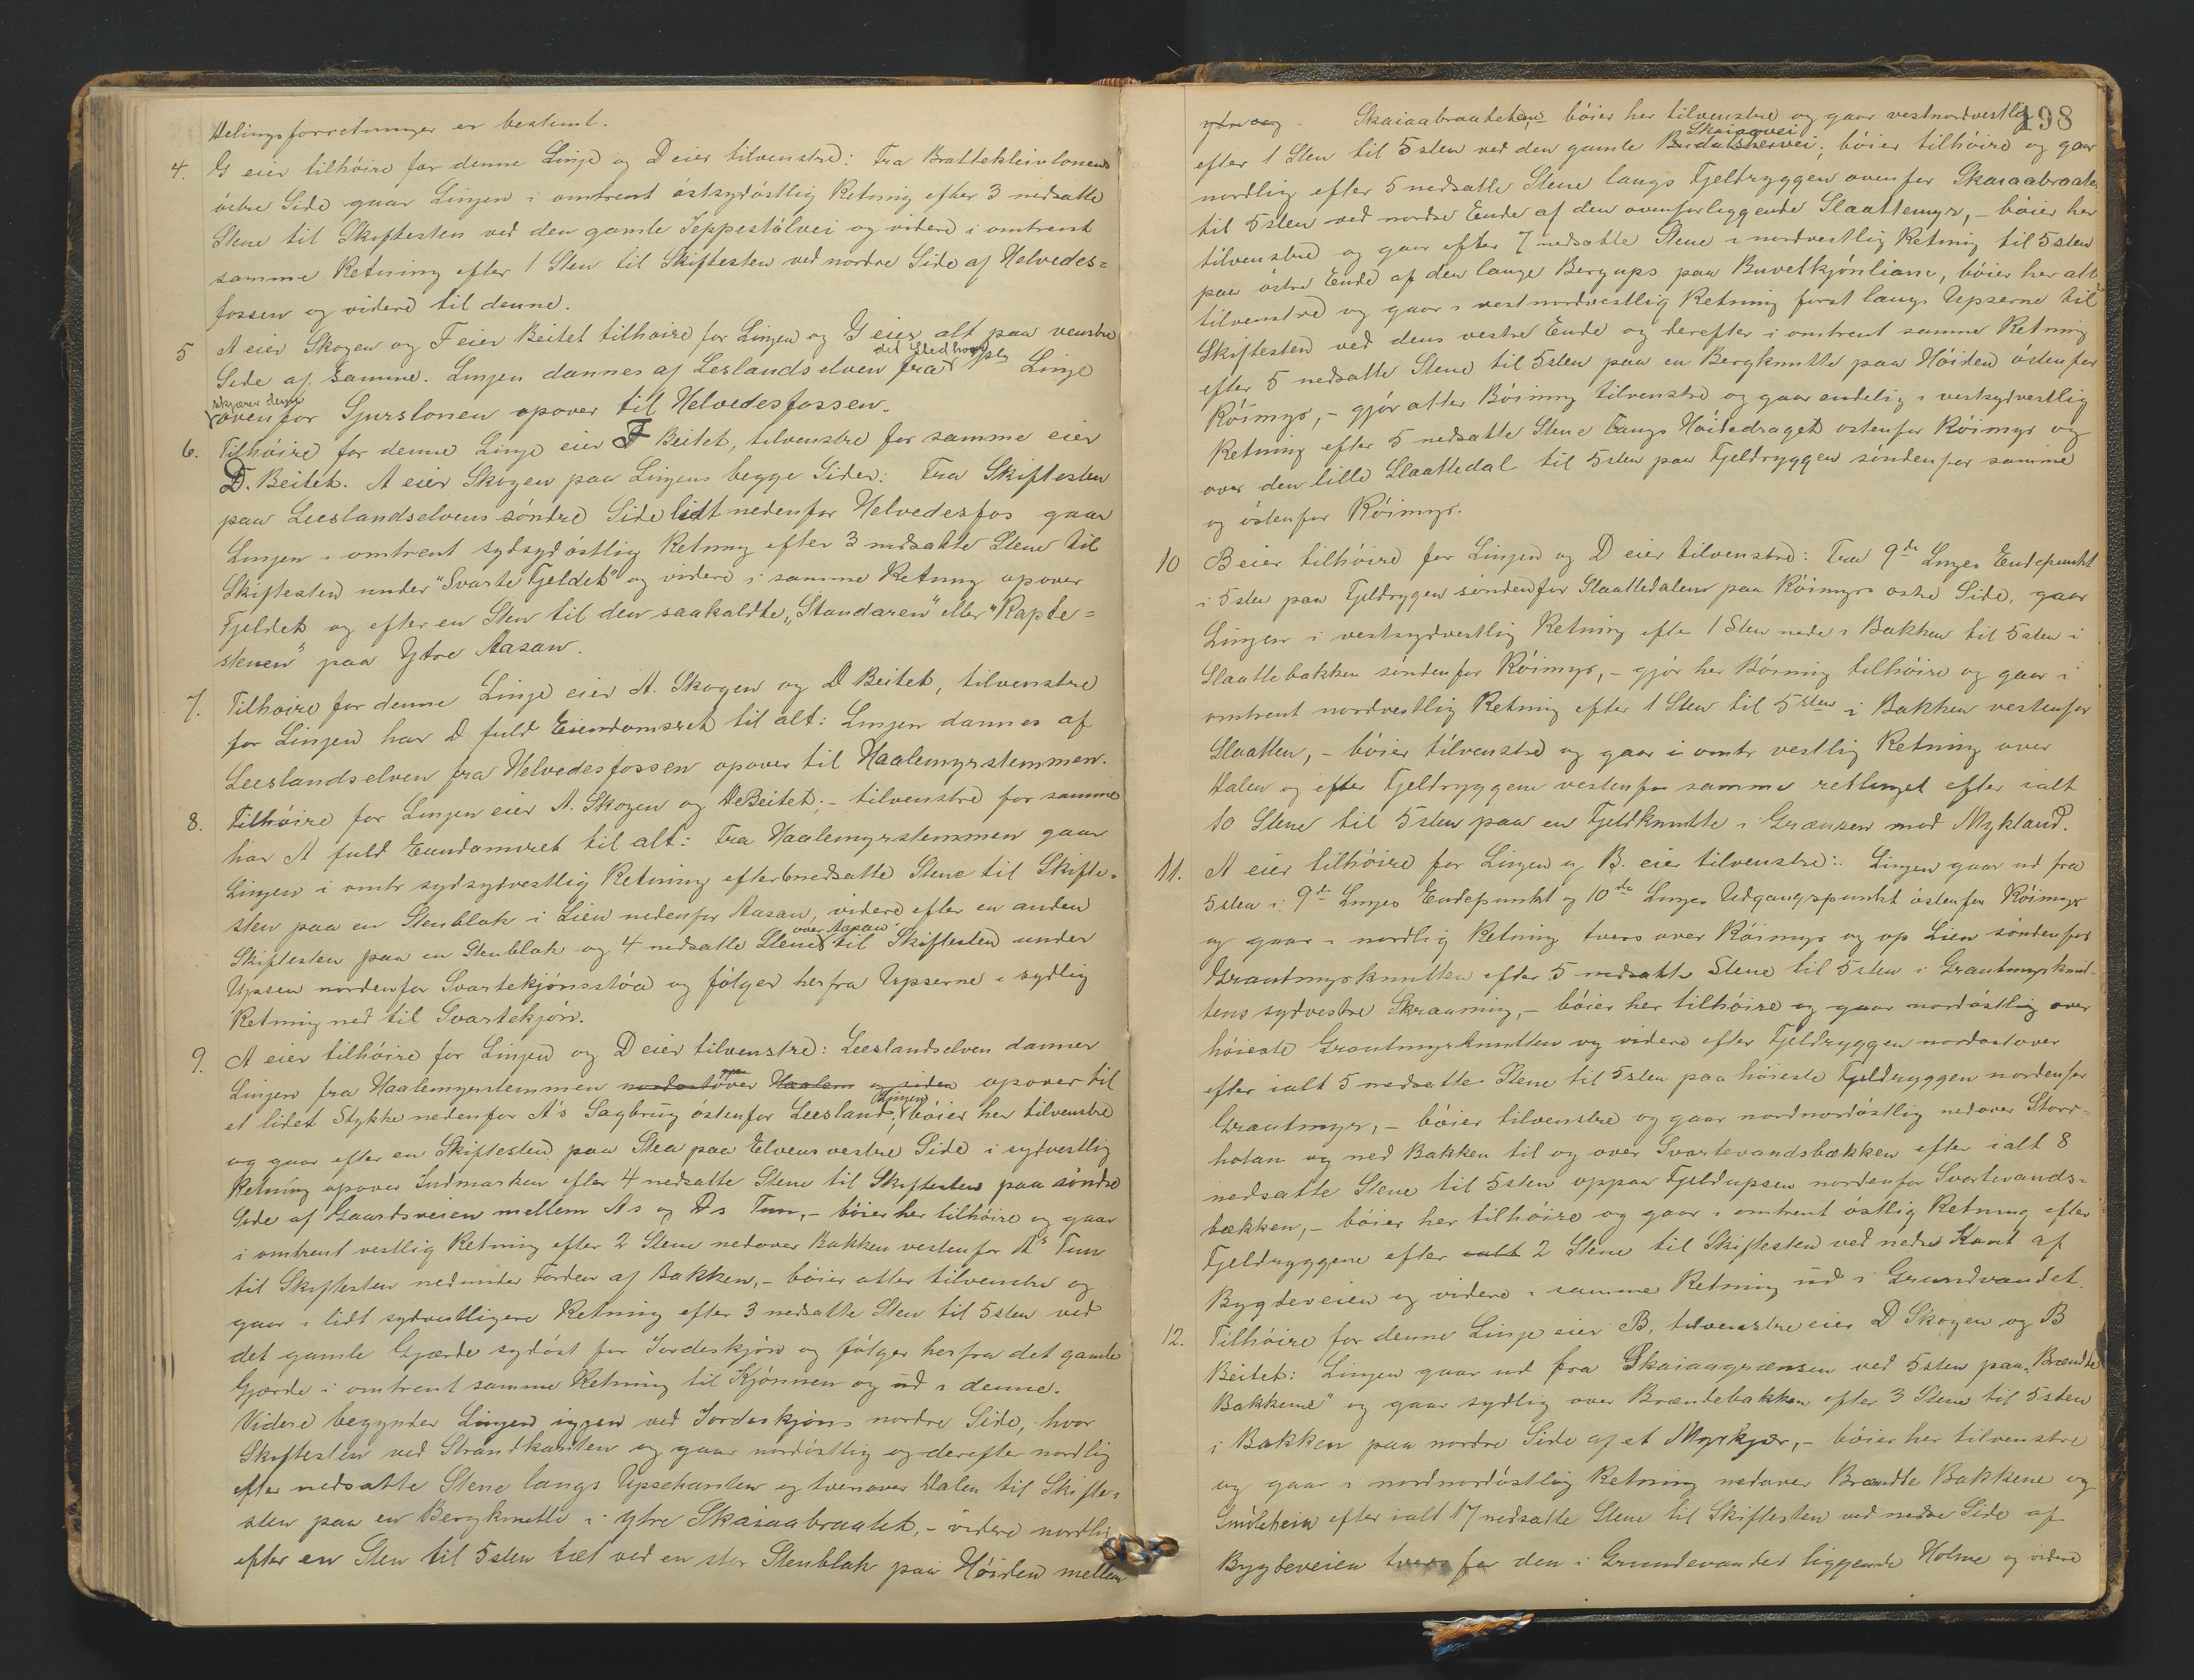 Delingsforretninger er bestemt.
4. G eier tilhöire for denne Linje og D eier tilvenstre: Fra Brattekleivlonens
östre Side gaar Linjen i omtrent östsydöstlig Retning efter 3 nedsatte
Stene til Skiftesten ved den gamle Jeppestölvei og videre i omtrent
samme Retning efter 1 Sten til Skiftesten ved nordre Side af Helvedes=
fossen og videre til denne.
5 A eier Skogen og F eier Beitet tilhöire for Linjen og G eier alt paa venstre
Side af samme. Linjen dannes af Leslandselven fra det Sted hvor Linje
skjærer denne ovenfor Sjurslonen opover til Helvedesfossen.
6. Tilhöire for denne Linje eier F Beitet, tilvenstre for samme eier
D. Beitet. A eier Skogen paa Linjens begge Sider: Fra Skiftesten
paa Leeslandselvens söndre Side lidt nedenfor Helvedesfos gaar
Linjen i omtrent sydsydöstlig Retning efter 3 nedsatte Stene til
Skiftesten under "Svarte Fjeldet" og videre i samme Retning opover
Fjeldet og efter en Sten til den saakaldte „Standaren" eller "Rapte=
stenen" paa Ytre Aasan.
7. Tilhöire for denne Linje eier A. Skogen og D Beitet, tilvenstre
for Linjen har D fuld Eiendomsret til alt: Linjen dannes af
Leeslandselven fra Helvedesfossen opover til Haalemyrstemmen.
8. Tilhöire for Linjen eier A. Skogen og D Beitet; - tilvenstre for samme
har A fuld Eiendomsret til alt: Fra Haalemyrstemmen gaar
Linjen i omtr sydsydvestlig Retning efter 6 nedsatte Stene til Skifte=
sten paa en Stenblok i Lien nedenfor Aasan, videre efter en anden
Skiftesten paa en Stenblok og 4 nedsatte Stene over Aasan til Skiftesten under
Upsen nordenfor Svartekjönsstöa og fölger herfra Upserne i sydlig
Retning ned til Svartekjön.
9. A eier tilhöire for Linjen og D eier tilvenstre: Leeslandselven danner
Linjen fra Haalemyrstemmen nordostover Haalem og siden opover til
et lidet Stykke nedenfor A's Sagbrug östenfor Leesland; Linjen böier her tilvenstre
og gaar efter en Skiftesten paa Stea paa Elvens vestre Side i sydvestlig
Retning opover Indmarken efter 4 nedsatte Stene til Skiftesten paa söndre
Side af Gaardsveien mellem A s og D s Tun, - böier her tilhöire og gaar
i omtrent vestlig Retning efter 2 Stene nedover Bakken vestenfor A s Tun
til Skiftesten nedunder Forden af Bakken, - böier atter tilvenstre og
gaar i lidt sydvestligere Retning efter 3 nedsatte Sten til 5sten ved
det gamle Gjærde sydöst for Jordeskjön og fölger herfra det gamle
Gjærde i omtrent samme Retning til Kjönnen og ud i denne.
Videre begynder Linjen igjen ved Jordeskjöns nordre Side, hvor
Skiftesten ved Strandkanten og gaar nordöstlig og derefter nordlig
efter nedsatte Stene langs Upsekanten og tversover Dalen til Skifte=
sten paa en Bergknutte i ytre Skaiaabraatet, - videre nordlig
efter en Sten til 5sten tæt ved en stor Stenblok paa Höiden mellem
198
ytre og Skaiaabraatetene böier her tilvenstre og gaar vestnordvestlig
efter 1 Sten til 5sten ved den gamle Skaiaavei; böier tilhöire og gaar
nordlig efter 5 nedsatte Stene langs Fjeldryggen ovenfor Skaiaabraatet
til 5sten ved nordre Ende af den ovenforliggende Slaattemyr, - böier her
tilvenstre og gaar efter 7 nedsatte Stene i nordvestlig Retning til 5sten
paa östre Ende af den lange Bergups paa Buvetkjönliane, böier her alt
tilvenstre og gaar i vestnordvestlig Retning först langs Upserne til
Skiftesten ved dens vestre Ende og derefter i omtrent samme Retning
efter 5 nedsatte Stene til 5sten paa en Bergknutte paa Höiden östenfor
Röimyr, - gjör atter Böining tilvenstre og gaar endelig i vestsydvestlig
Retning efter 5 nedsatte Stene langs Höidedraget ostenfor Röimyr og
over den lille Slaattedal til 5sten paa Fjeldryggen söndenfor samme
og östenfor Röimyr.
10 B eier tilhöire for Linjen og D eier tilvenstre: Fra 9de Linjes Endepunkt
i 5sten paa Fjeldrygen söndenfor Slaattedalen paa Röimyrs ostre Side, gaar
Linjen i vestsydvestlig Retning efter 1 Sten nede i Bakken til 5sten i
Slaattebakken söndenfor Röimyr, - gjör her Böining tilhöire og gaar i
omtrent nordvestlig Retning efter 1 Sten til 5sten i Bakken vestenfor
Slaatten, - böier tilvenstre og gaar i omtr vestlig Retning over
Dalen og efter Fjeldryggene vestenfor samme retlinjet efter ialt
10 Stene til 5sten paa en Fjeldknutte i Grænsen mod Mykland.
11. A eier tilhöire for Linjen og B. eier tilvenstre: Linjen gaar ud fra
5sten i 9de Linjes Endepunkt og 10de Linjes Udgangspunkt östenfor Röimyr
og gaar i nordlig Retning tvers over Röimyr og op Lien söndenfor
Grautmyrknutten efter 5 nedsatte Stene til 5sten i Grautmyrknut-
tens sydvestre Skraaning, - böier her tilhöire og gaar nordöstlig over
höieste Grautmyrknutten og videre efter Fjeldryggen nordostover
efter ialt 5 nedsatte Stene til 5sten paa höieste Fjeldryggen nordenfor
Grautmyr, - böier tilvenstre og gaar nordnordöstlig nedover Storr=
hotan og ned Bakken til og over Svartevandsbækken efter ialt 8
nedsatte Stene til 5sten oppaa Fjeldupsen nordenfor Svartevands=
bækken, - böier her tilhöire og gaar i omtrent östlig Retning efter
Fjeldryggene efter ialt 2 Stene til Skiftesten ved nedre Kant af
Bygdeveien og videre i samme Retning ud i Grundvandet.
12. Tilhöire for denne Linje eier B, tilvenstre eier D Skogen og B
Beitet: Linjen gaar ud fra Skaiaagrænsen ved 5sten paa „Brændte
Bakkene" og gaar sydlig over Brændebakken efter 3 Stene til 5sten
i Bakken paa nordre Side af et Myrkjær, - böier her tilvenstre
og gaar i nordnordöstlig Retning nedover Brændte Bakkene og
efter ialt 17 nedsatte Stene til Skiftesten ved nedre Side af
Bygdeveien tvers for den i Grundevandet liggende Holme og videre